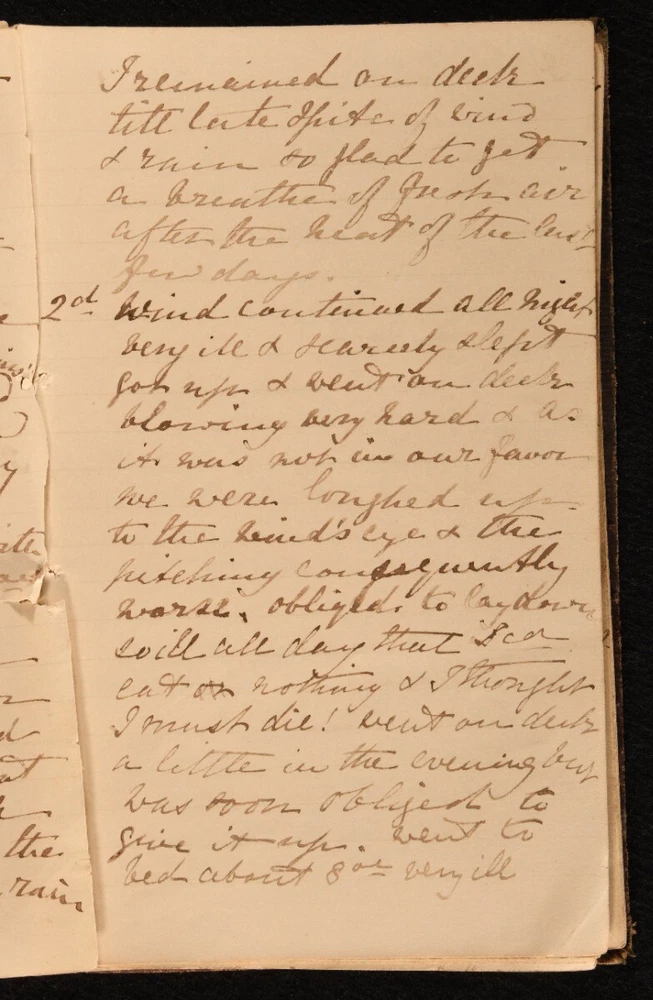 I remained on deck
till late spite of wind
& rain so glad to get
a breathe of fresh air
after the heat of the last
few days.
2d wind continued all night
very ill & scarcely slept
got up & went on deck
blowing very hard & as
it was not in our favor
we were loughed up
to the wind's eye & the
pitching consequently
worse. obliged to lay down
so ill all day that I cd
eat nothing & I thought
I must die! went on deck
a little in the evening but
was soon obliged to
give it up. went to
bed about 8 very ill
the
rain